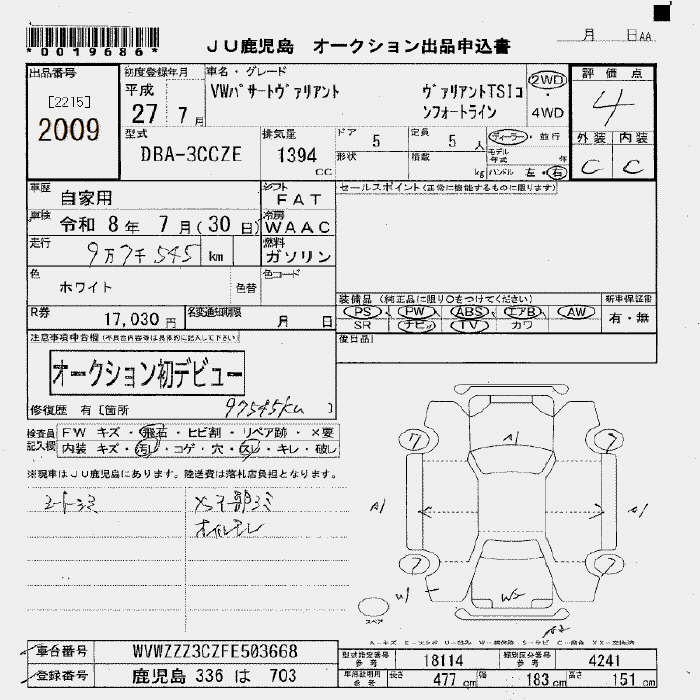 *0019686*
JU鹿児島 オークション出品申込書
月 日AA
出品番号
[2215]
2009
初度登録年月
平成
27 7月
車名・グレード
VWパサートヴァリアント ヴァリアントTSIコンフォートライン
2WD
・
4WD
評価点
4
外装 内装
C C
型式
DBA-3CCZE
排気量
1394
CC
ドア 5
定員 5 人
形状
積載 kg
ディーラー・並行
モデル年式 年
ハンドル 左・右
車歴
自家用
シフト
FAT
車検
令和 8年 7月(30日)
冷房
WAAC
走行
9万7千545 km
燃料
ガソリン
色
ホワイト
色替
色コード
R券
17,030円
名変通知期限
月 日
セールスポイント(正常に機能するものに限ります)
装備品(純正品に限り○をつけてください)
PS PW ABS エアB AW
SR ナビ TV カワ
新車保証書
有・無
後日品
注意事項申告欄(不具合内容等は具体的に記入して下さい)
オークション初デビュー
97545km
修復歴 有[箇所 ]
検査員記入欄
FW キズ・飛石・ヒビ割・リペア跡・×要
内装 キズ・汚レ・コゲ・穴・スレ・キレ・破レ
※現車はJU鹿児島にあります。陸送費は落札店負担となります。
A1
A1
A1
U1
W2
A2
7
7
7
7
スペア
車台番号 WVWZZZ3CZFE503668
登録番号 鹿児島 336 は 703
型式指定番号 参考 18114
類別区分番号 参考 4241
車庫証明用 参考 長さ 477cm 幅 183cm 高さ 151cm